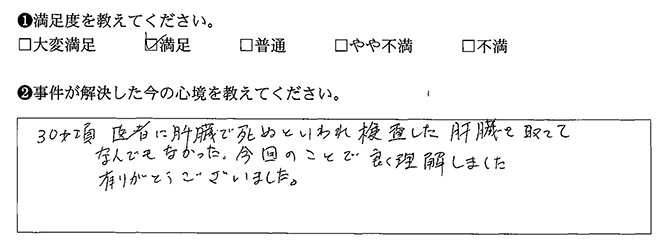 ❶満足度を教えてください。
□大変満足 ☑満足 □普通 □やや不満 □不満
❷事件が解決した今の心境を教えてください。
30才頃 医者に肝臓で死ぬといわれ 検査した 肝臓を取って
なんでもなかった. 今回のことで 良く理解しました
有りがとうございました。